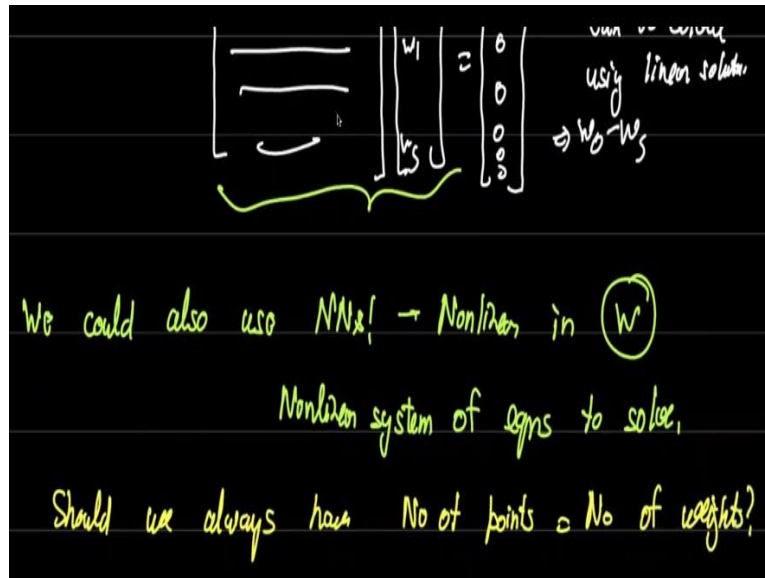 w₁ = 0
using linear solution.
0
0
w₅ 0 ⇒ w₀-w₅
0
We could also use NNs! → Nonlinear in W
Nonlinear system of eqns to solve.
Should we always have No of points = No of weights?